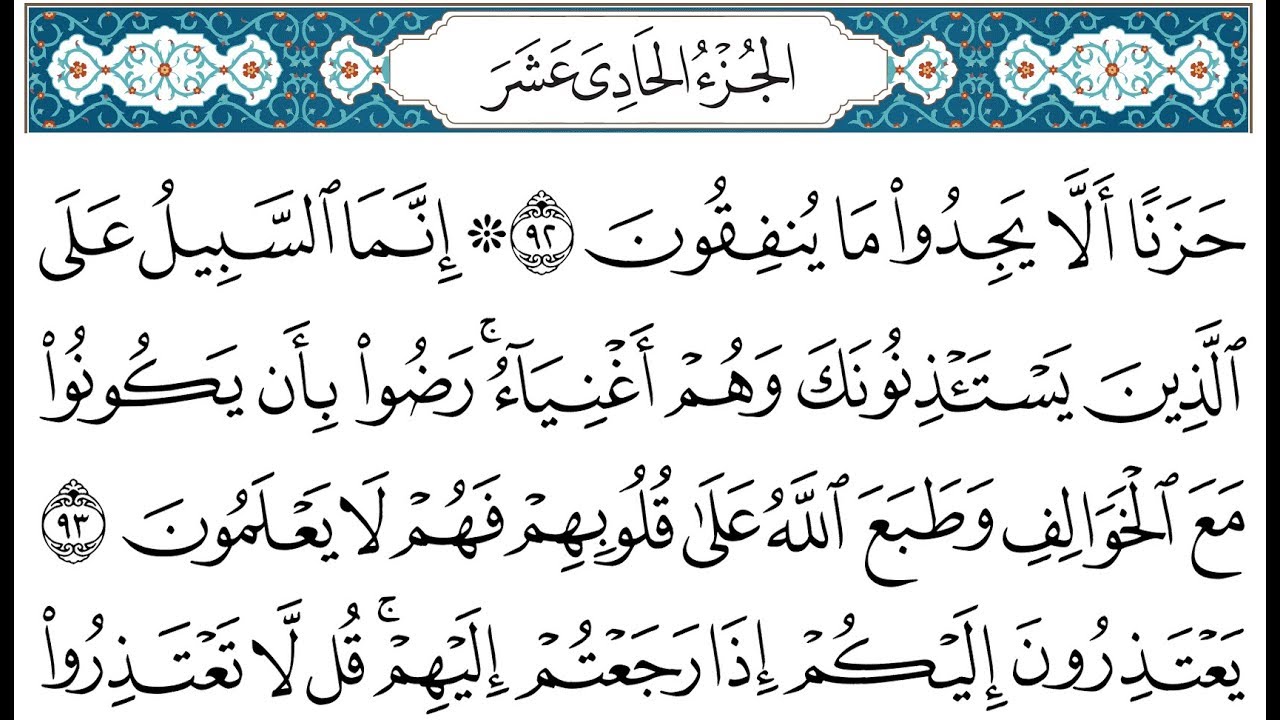 الجُزْءُ الحَادِى عَشَرَ
حَزَنًا أَلَّا يَجِدُوا۟ مَا يُنفِقُونَ ٩٢ ۞ إِنَّمَا ٱلسَّبِيلُ عَلَى
ٱلَّذِينَ يَسْتَـْٔذِنُونَكَ وَهُمْ أَغْنِيَآءُ ۚ رَضُوا۟ بِأَن يَكُونُوا۟
مَعَ ٱلْخَوَالِفِ وَطَبَعَ ٱللَّهُ عَلَىٰ قُلُوبِهِمْ فَهُمْ لَا يَعْلَمُونَ ٩٣
يَعْتَذِرُونَ إِلَيْكُمْ إِذَا رَجَعْتُمْ إِلَيْهِمْ ۚ قُل لَّا تَعْتَذِرُوا۟